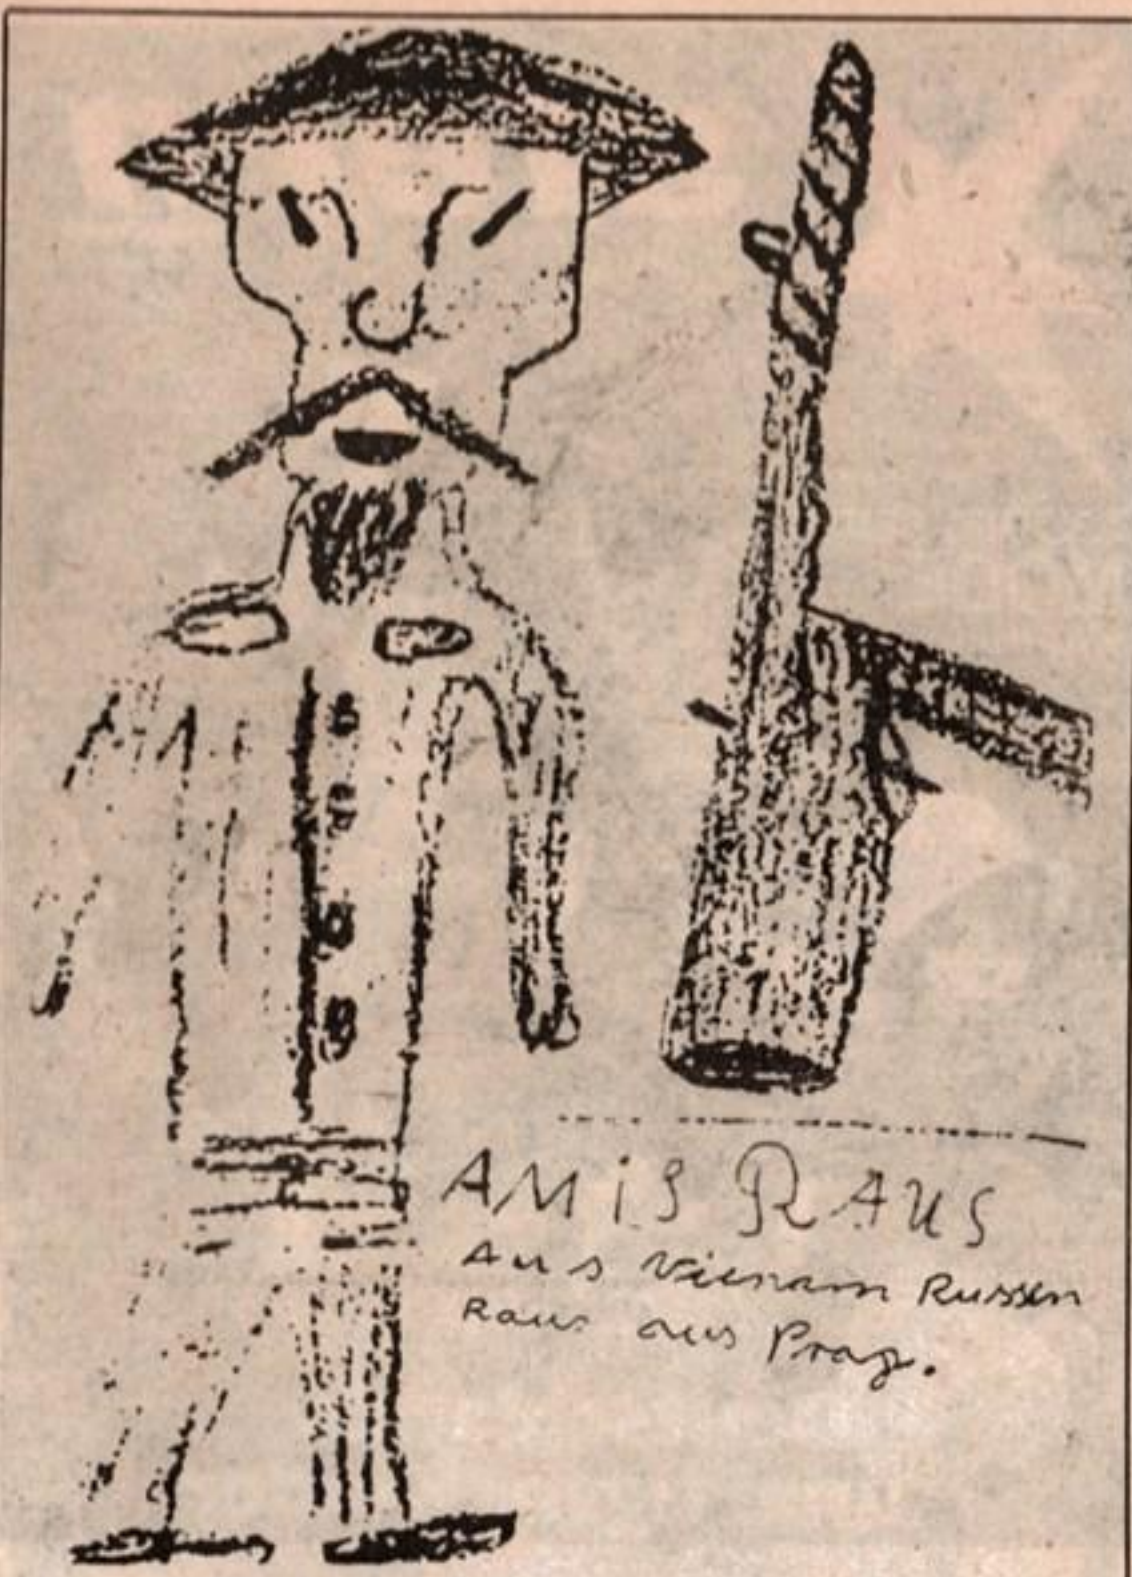 AMiS RAUS
Aus Vienam Russen
Raus aus Prag.